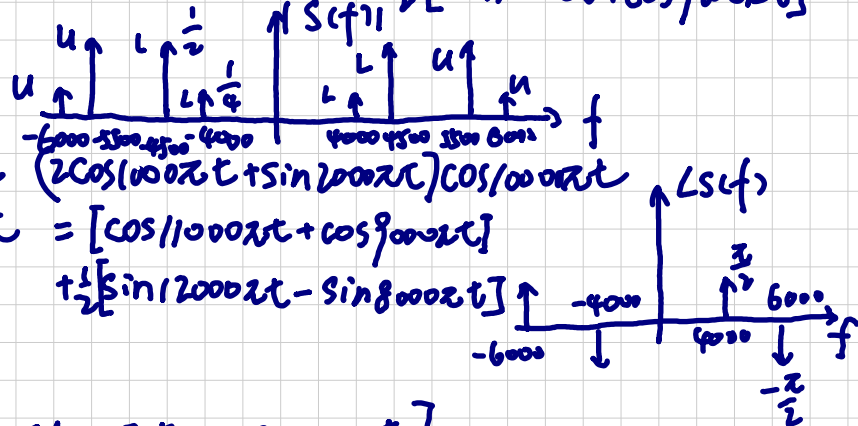 S(f)
U U L 1/2 L 1/4 L L U U
-6000 -5500 -4500 -4000 4000 4500 5500 6000 f
(2cos1000πt+sin2000πt)cos10000πt
= [cos11000πt+cos9000πt]
+1/2[sin12000πt-sin8000πt]
∠S(f)
π/2
-6000 -4000 4000 6000 f
-π/2
]